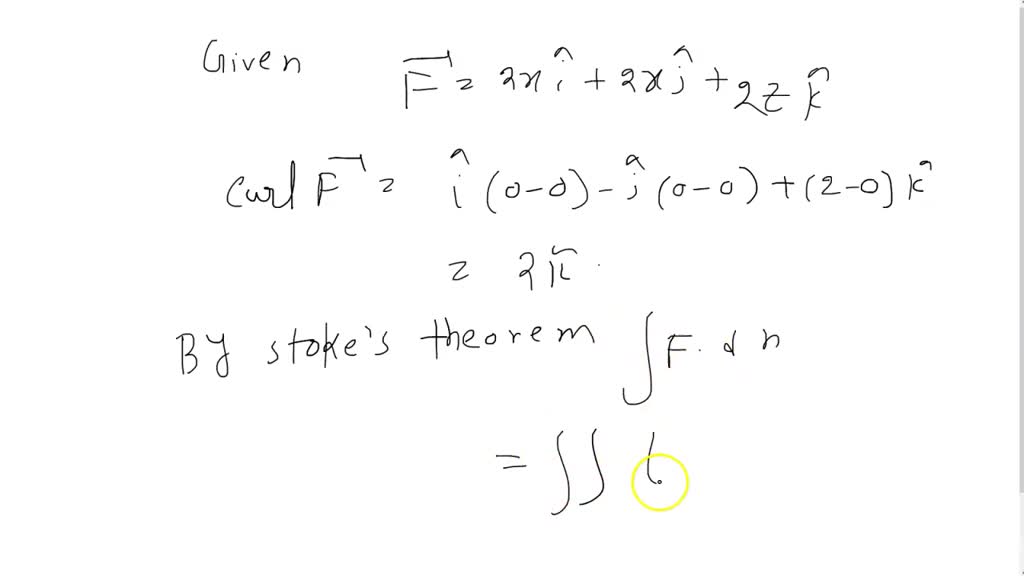 Given F⃗ = 2xî + 2xĵ + 2z k̂
Curl F⃗ = î (0-0) - ĵ (0-0) + (2-0) k̂
= 2k̂
By stoke's theorem ∫ F. d n
= ∫∫ (